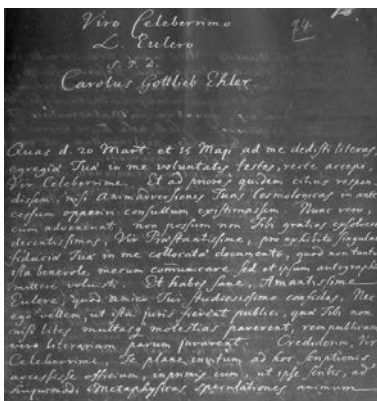 Viro Celeberrimo
L. Eulero
S. P. D.
Carolus Gottlieb Ehler.
74
Quas d. 20 Mart. et 15 Maji ad me dedisti literas,
egregiæ Tuæ in me voluntatis testes, recte accepi,
Vir Celeberrime. Et ad priores quidem citius respon
dissem, nisi animadversiones Tuas Cosmologicas in ante
cessum opperiri consultum existimassem. Nunc vero,
cum advenerunt, non possum non Tibi gratias
decentissimas, Vir Præstantissime, pro exhibito singularis
fiduciæ Tuæ in me collocatæ documento, quod non tantum
ista benevole mecum communicare sed et ipsum autographum
mittere voluisti. Et habes sane, Amantissime
Eulere, quod amico Tui studiosissimo confidas. Nec
ego vellem, ut ista juris fierent publici, quæ Tibi non
nisi lites multasq molestias parerent, rempublicam
vero literariam parum juvarent. Crediderim, Vir
Celeberrime, Te plane invitum ad hoc scriptionis
accessisse officium, inprimis cum, ut ipse scribis, ad
Metaphysicas speculationes animum